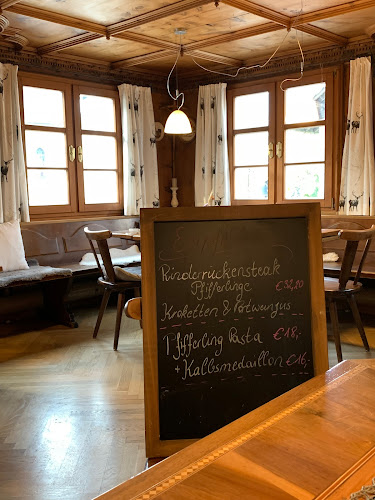 Rinderrückensteak
Pfifferlinge €32,20
Kroketten & Rotweinjus
Pfifferling Pasta €18,-
+ Kalbsmedaillon €16,-